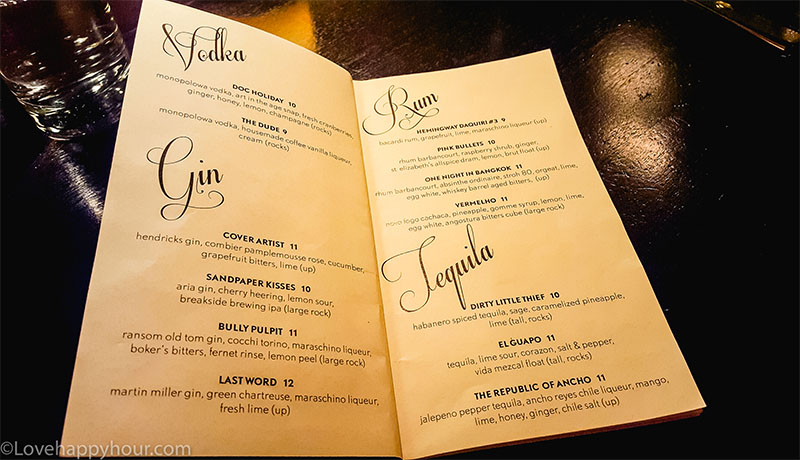 Vodka
DOC HOLIDAY 10
monopolowa vodka, art in the age snap, fresh cranberries,
ginger, honey, lemon, champagne (rocks)
THE DUDE 9
monopolowa vodka, housemade coffee vanilla liqueur,
cream (rocks)
Gin
COVER ARTIST 11
hendricks gin, combier pamplemousse rose, cucumber,
grapefruit bitters, lime (up)
SANDPAPER KISSES 10
aria gin, cherry heering, lemon sour,
breakside brewing ipa (large rock)
BULLY PULPIT 11
ransom old tom gin, cocchi torino, maraschino liqueur,
boker's bitters, fernet rinse, lemon peel (large rock)
LAST WORD 12
martin miller gin, green chartreuse, maraschino liqueur,
fresh lime (up)
Rum
HEMINGWAY DAQUIRI #3 9
bacardi rum, grapefruit, lime, maraschino liqueur (up)
PINK BULLETS 10
rhum barbancourt, raspberry shrub, ginger,
st. elizabeth's allspice dram, lemon, brut float (up)
ONE NIGHT IN BANGKOK 11
rhum barbancourt, absinthe ordinaire, stroh 80, orgeat, lime,
egg white, whiskey barrel aged bitters, (up)
VERMELHO 11
novo fogo cachaca, pineapple, gomme syrup, lemon, lime,
egg white, angostura bitters cube (large rock)
Tequila
DIRTY LITTLE THIEF 10
habanero spiced tequila, sage, caramelized pineapple,
lime (tall, rocks)
EL GUAPO 11
tequila, lime sour, corazon, salt & pepper,
vida mezcal float (tall, rocks)
THE REPUBLIC OF ANCHO 11
jalepeno pepper tequila, ancho reyes chile liqueur, mango,
lime, honey, ginger, chile salt (up)
©Lovehappyhour.com